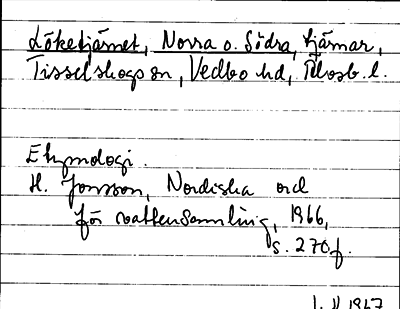 Löketjärnet, Norra o. Södra, tjärnar,
Tisselskogs sn, Vedbo hd, Älvsb. l.
Etymologi.
H. Jonsson, Nordiska ord
för vattensamling, 1966,
s. 270f.
1967